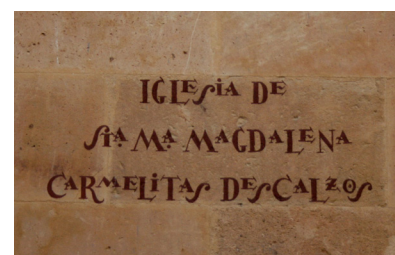 IGLESiA DE
STA MA MAGDALENA
CARMELiTAS DESCALZOS